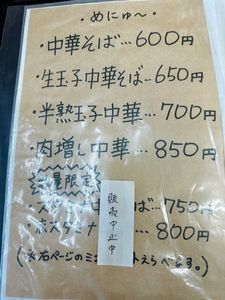 ・めにゅ〜・
・中華そば…600円
・生玉子中華そば…650円
・半熟玉子中華…700円
・肉増し中華…850円
量限定
ば…750円
800円
販売中止中
(※右ページのミ えらべます。)